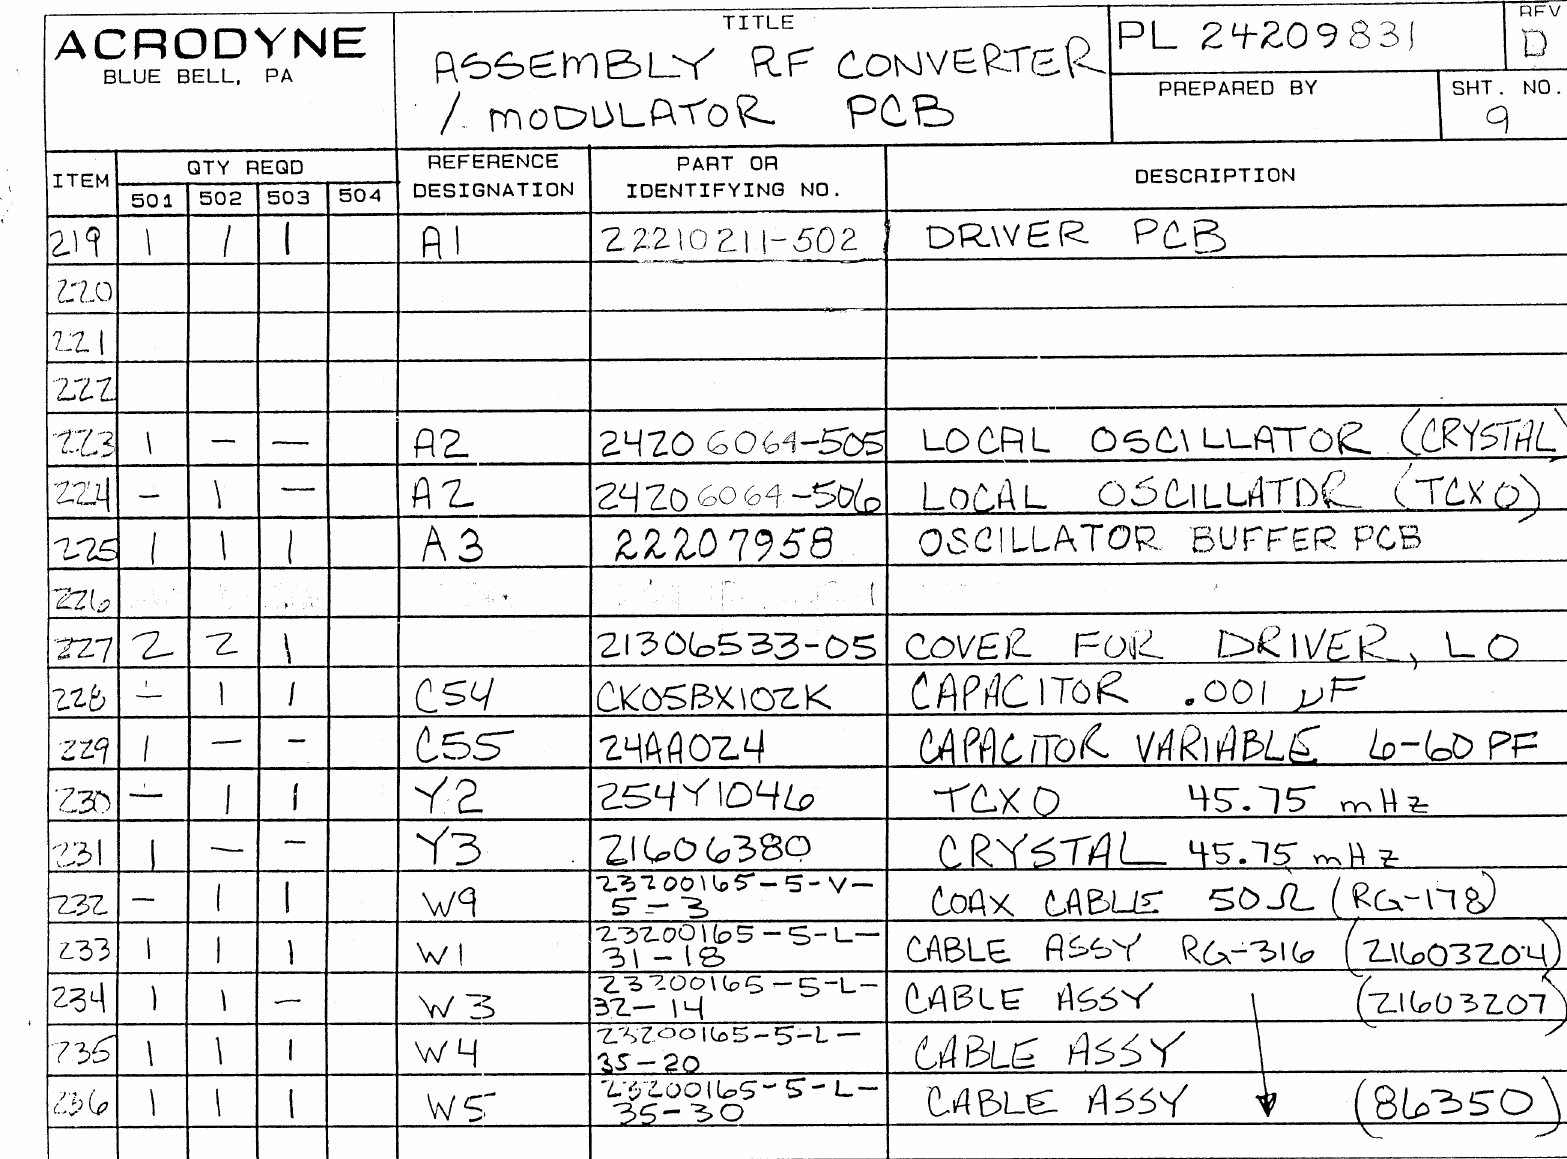 ACRODYNE
BLUE BELL, PA
TITLE
ASSEMBLY RF CONVERTER
/ MODULATOR PCB
PL 24209831
REV
D
PREPARED BY
SHT. NO.
9
ITEM
QTY REQD
501 502 503 504
REFERENCE
DESIGNATION
PART OR
IDENTIFYING NO.
DESCRIPTION
219 1 1 1 A1 22210211-502 DRIVER PCB
220
221
222
223 1 - - A2 24206064-505 LOCAL OSCILLATOR (CRYSTAL)
224 - 1 - A2 24206064-506 LOCAL OSCILLATOR (TCXO)
225 1 1 1 A3 22207958 OSCILLATOR BUFFER PCB
226
227 2 2 1 21306533-05 COVER FOR DRIVER, LO
228 - 1 1 C54 CK05BX102K CAPACITOR .001 µF
229 1 - - C55 24AA024 CAPACITOR VARIABLE 6-60 PF
230 - 1 1 Y2 254Y1046 TCXO 45.75 mHz
231 1 - - Y3 21606380 CRYSTAL 45.75 mHz
232 - 1 1 W9 23200165-5-V-
5-3 COAX CABLE 50Ω (RG-178)
233 1 1 1 W1 23200165-5-L-
31-18 CABLE ASSY RG-316 (21603204)
234 1 1 - W3 23200165-5-L-
32-14 CABLE ASSY (21603207)
235 1 1 1 W4 23200165-5-L-
35-20 CABLE ASSY
236 1 1 1 W5 23200165-5-L-
35-30 CABLE ASSY (86350)